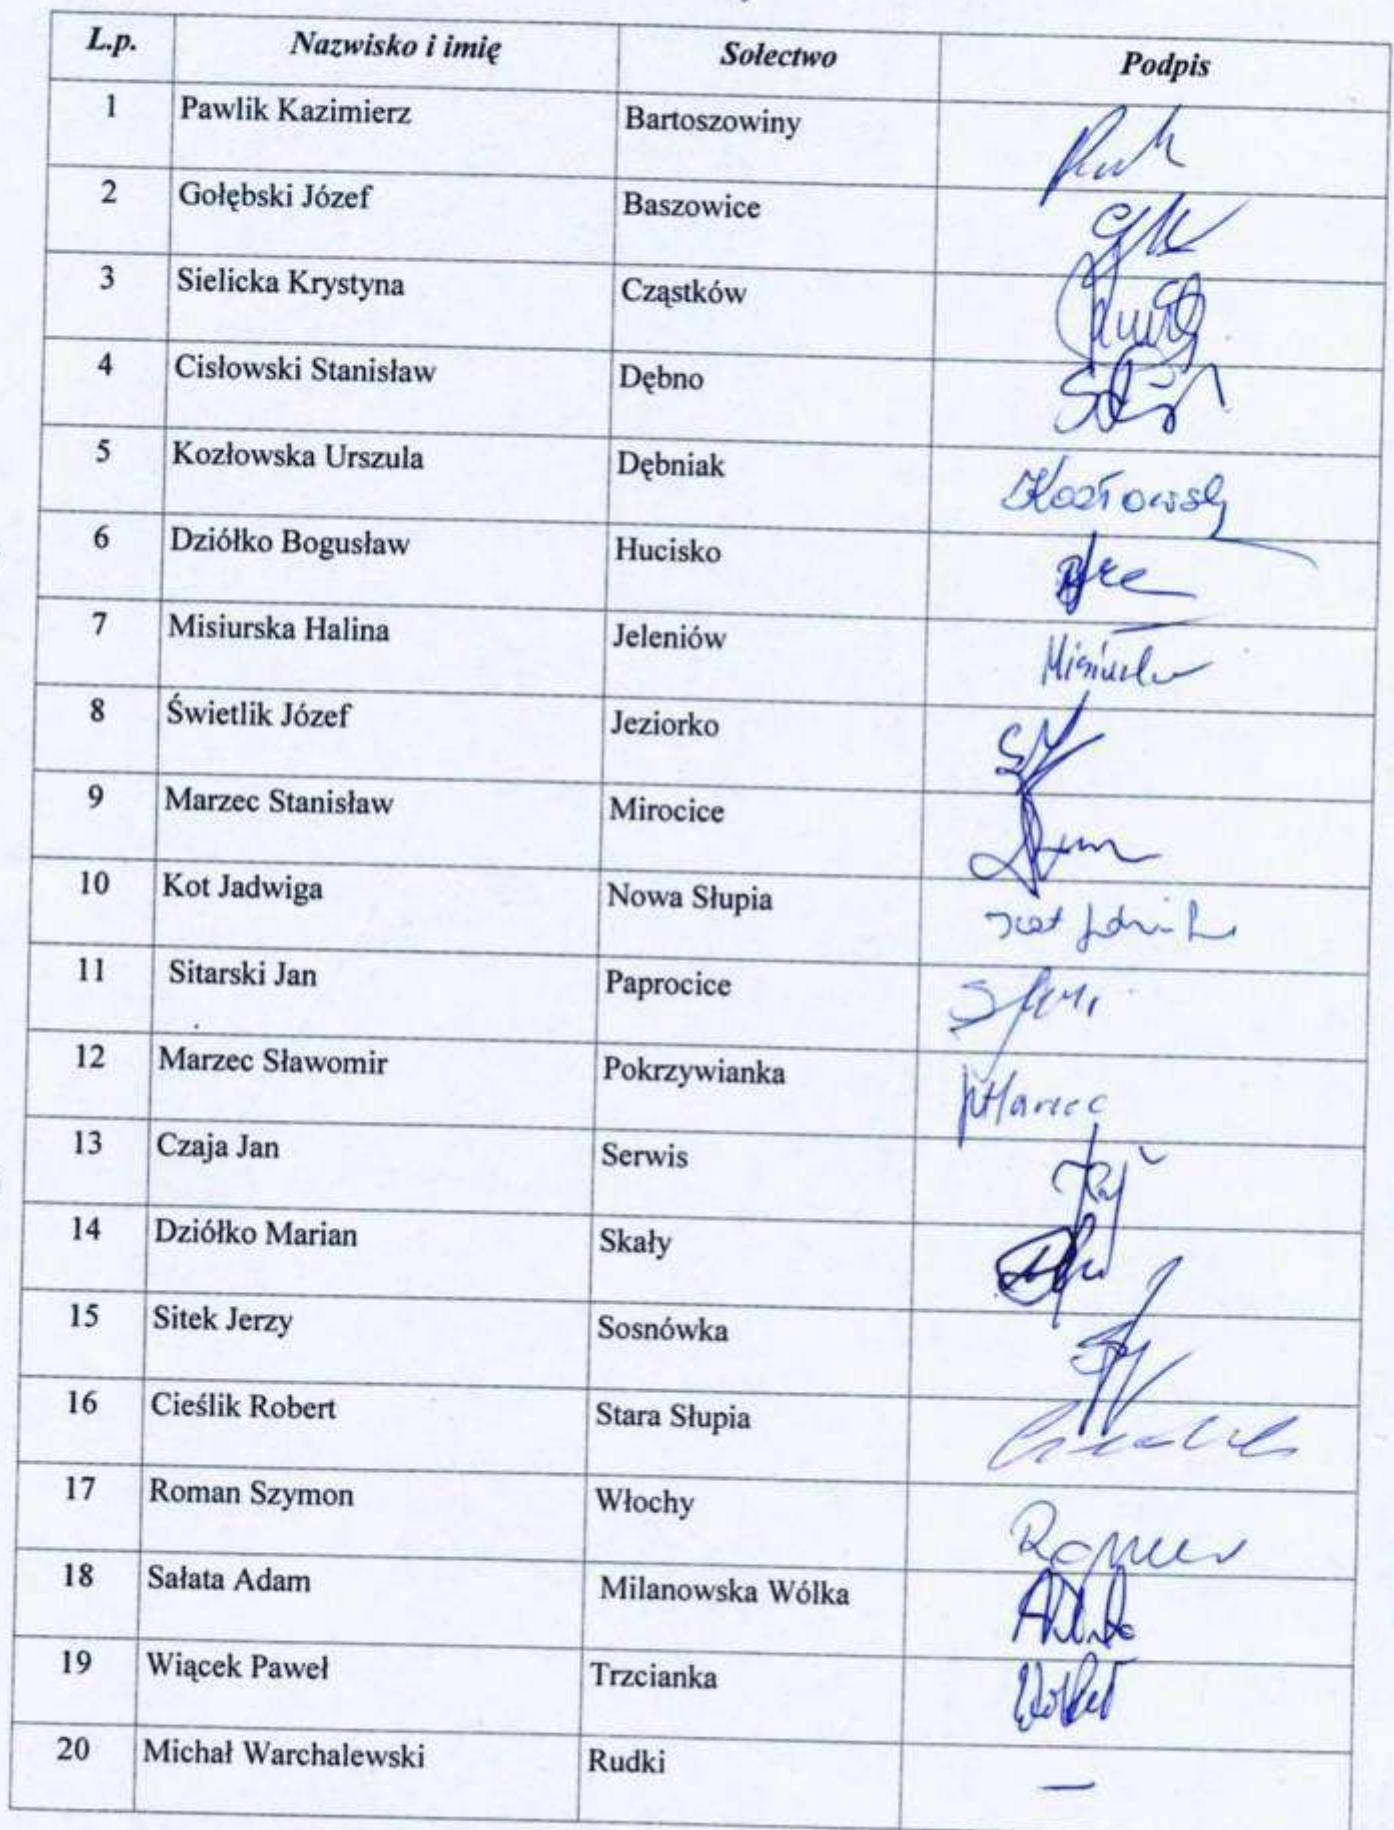 L.p. Nazwisko i imię Sołectwo Podpis
1 Pawlik Kazimierz Bartoszowiny
2 Gołębski Józef Baszowice
3 Sielicka Krystyna Cząstków
4 Cisłowski Stanisław Dębno
5 Kozłowska Urszula Dębniak
6 Dziółko Bogusław Hucisko
7 Misiurska Halina Jeleniów
8 Świetlik Józef Jeziorko
9 Marzec Stanisław Mirocice
10 Kot Jadwiga Nowa Słupia
11 Sitarski Jan Paprocice
12 Marzec Sławomir Pokrzywianka
13 Czaja Jan Serwis
14 Dziółko Marian Skały
15 Sitek Jerzy Sosnówka
16 Cieślik Robert Stara Słupia
17 Roman Szymon Włochy
18 Sałata Adam Milanowska Wólka
19 Wiącek Paweł Trzcianka
20 Michał Warchalewski Rudki —